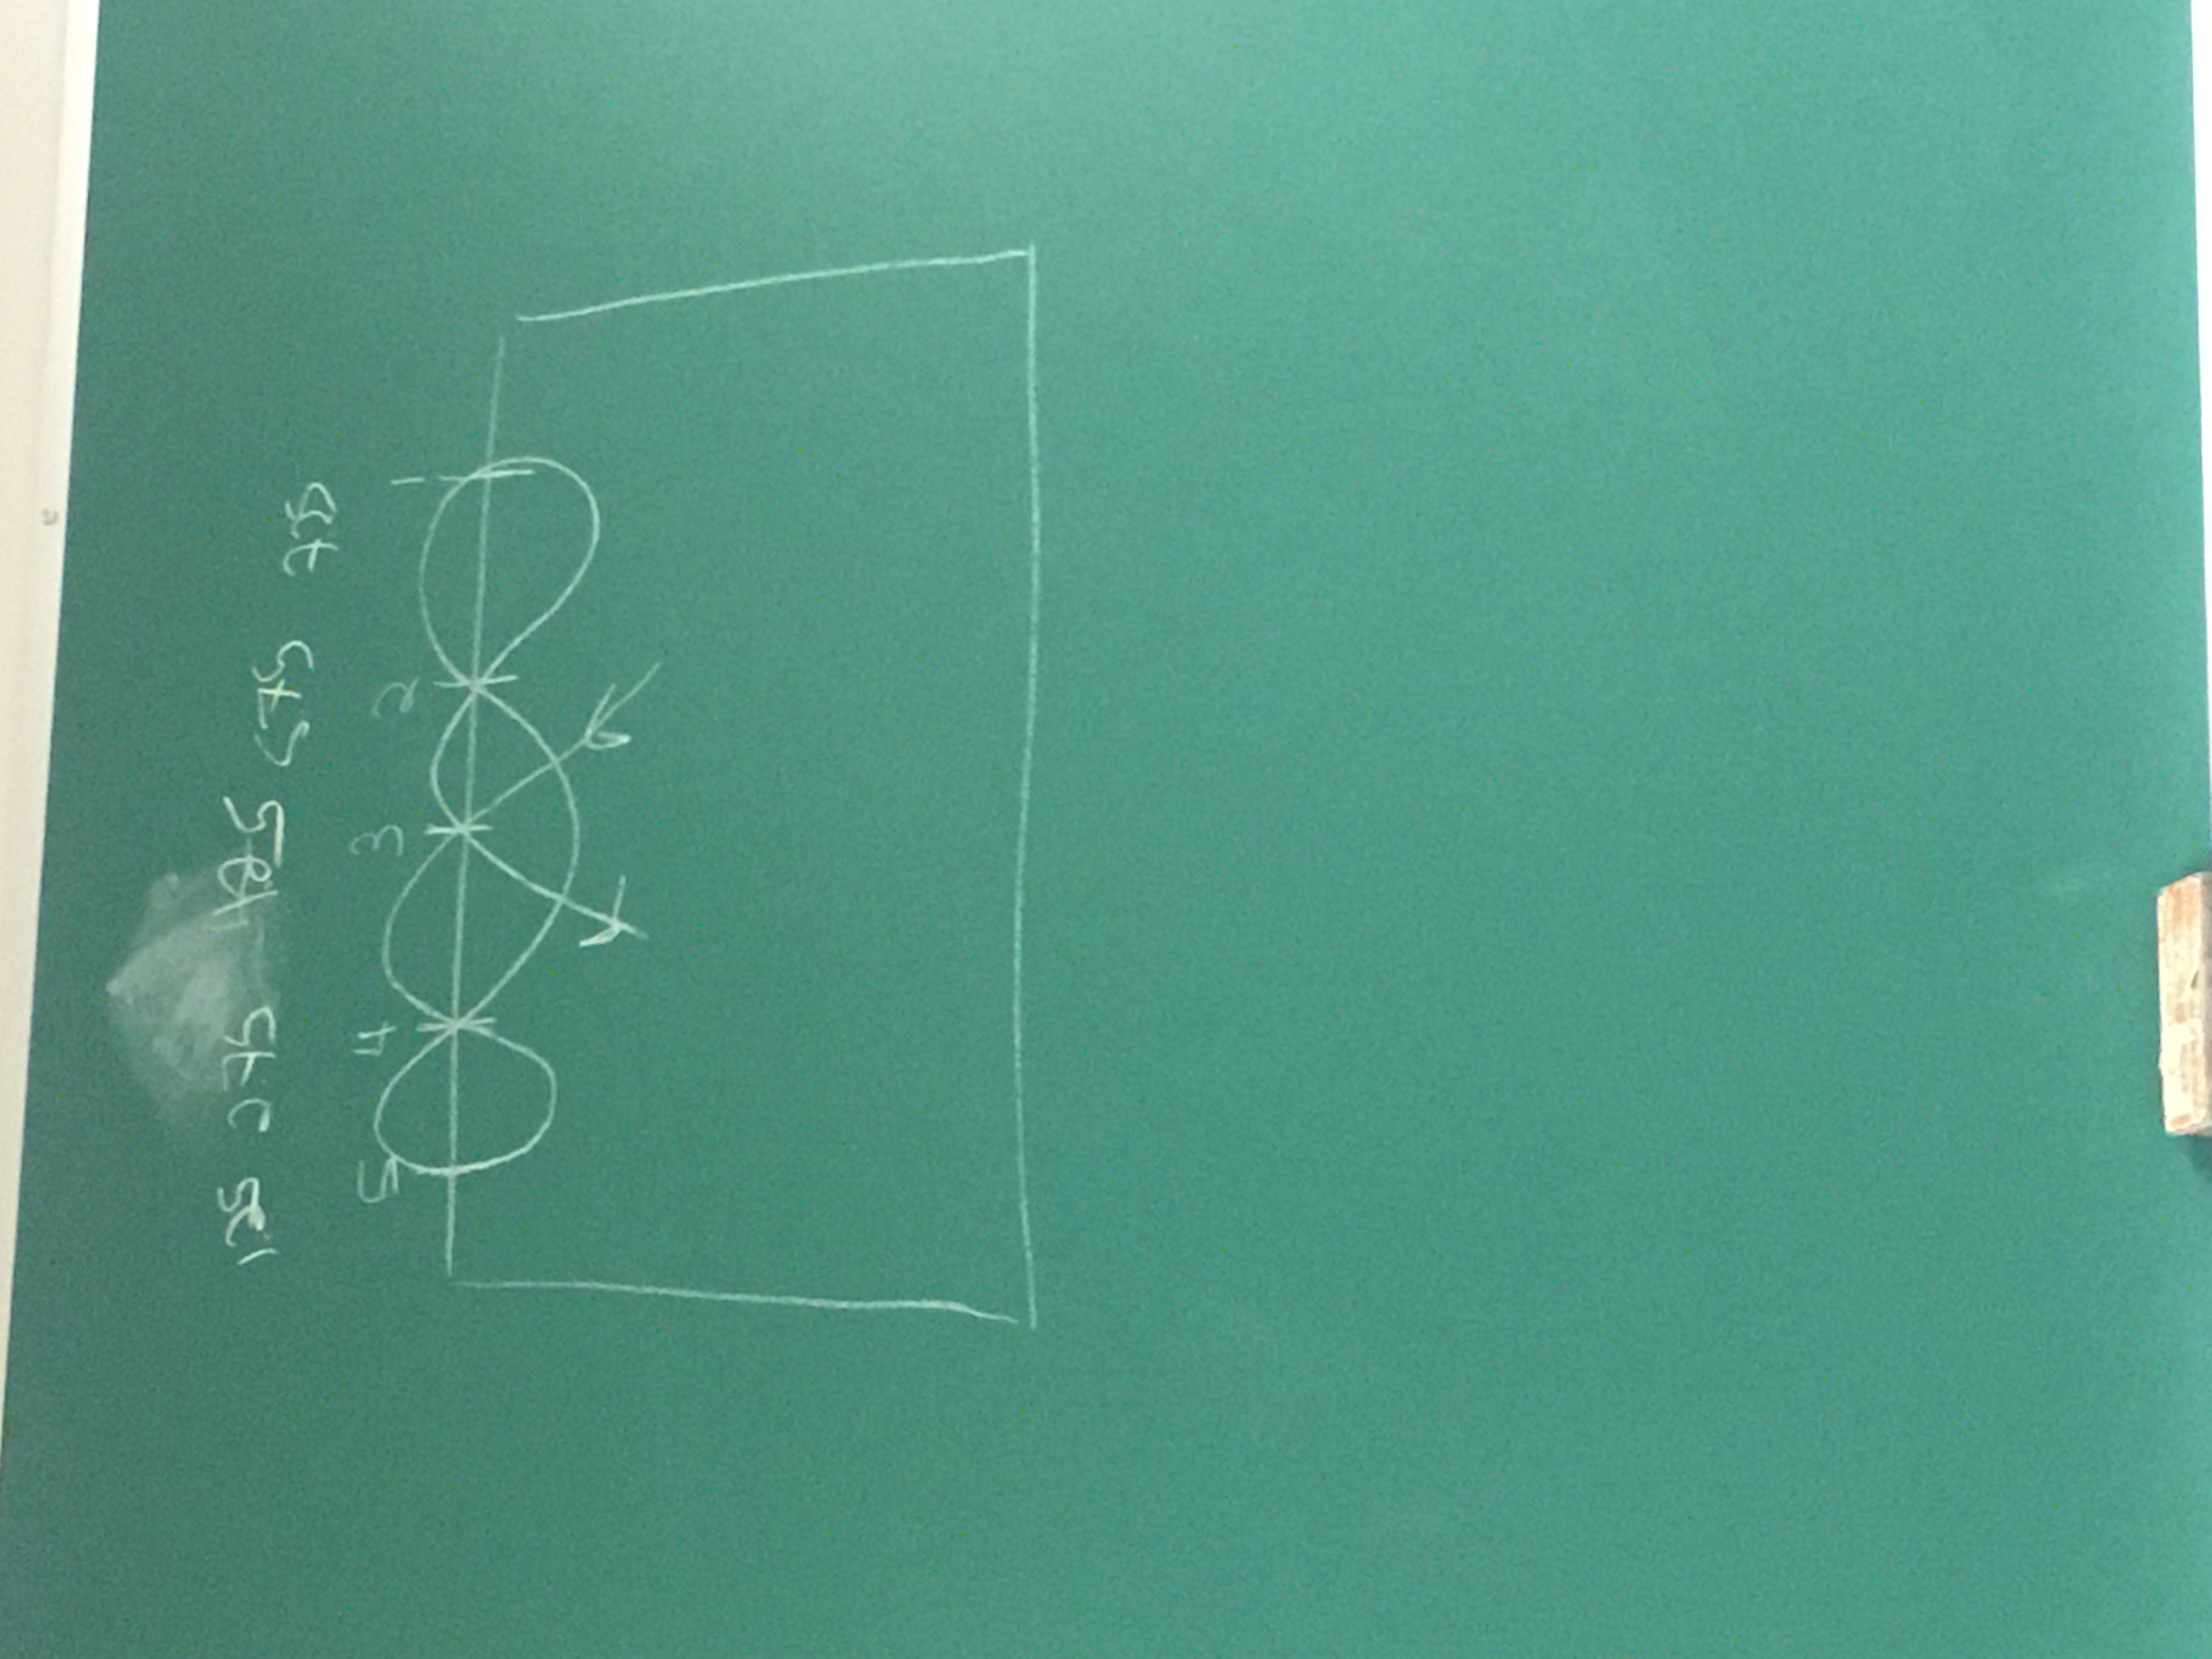 1.25 2.75 4.25 5.75 7.25
5 4 3 2 1